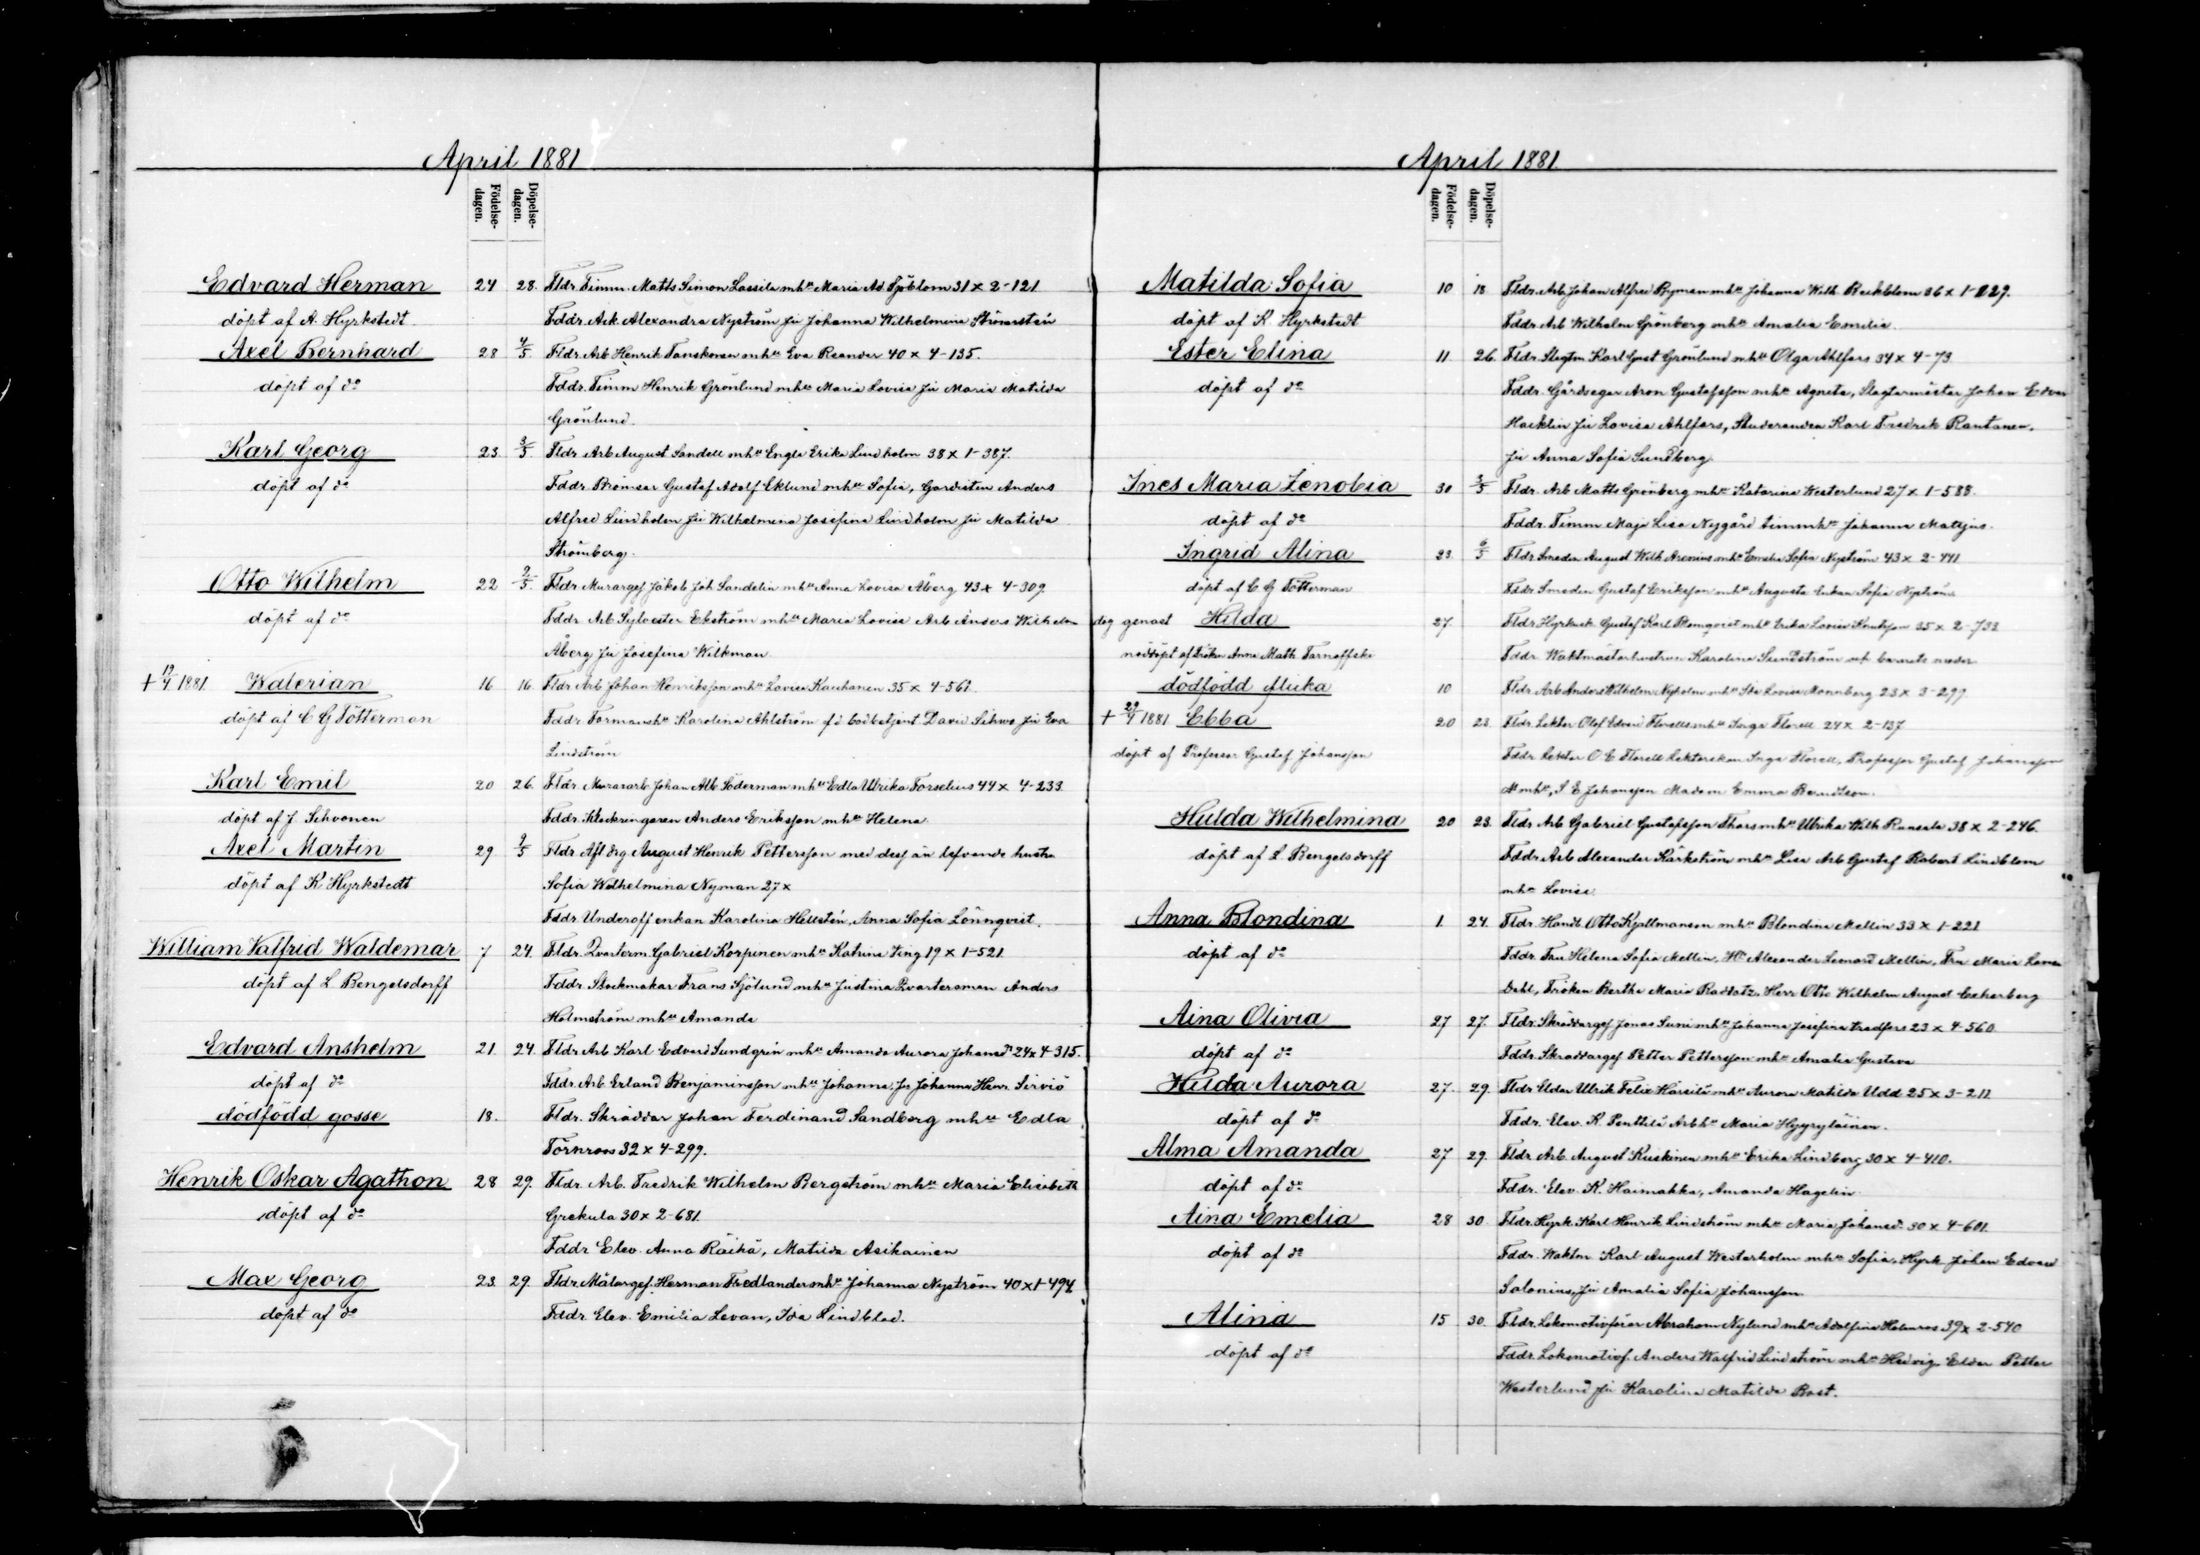 April 1881
Födelse-
dagen.
Döpelse-
dagen.
Edvard Herman 24 28. Fldr. Timm. Matts Simon Lassila mhu Maria Ad. Sjöblom 31 x 2-121
döpt af A. Hyrkstedt. Fddr. Ark Alexandra Nyström Ju Johanna Wilhelmina
Axel Bernhard 28 4/5 Fldr. Arb Henrik Tanskanen mhu Eva Reander 40 x 4-135.
döpt af do Fddr. Timm Henrik Grönlund mhu Maria Lovisa Ju Maria Matilda
Grönlund.
Karl Georg 23. 3/5. Fldr Arb August Sandell mhu Engla Erika Lindholm 38 x 1-387.
döpt af do Fddr. Bromsar Gustaf Adolf Eklund mhu Sofia, Gardisten Anders
Alfred Lindholm Ju Wilhelmina Josefina Lindholm Ju Matilda
Strömberg.
Otto Wilhelm 22 2/5. Fldr Murargef Jakob Joh Sandelin mhu Anna Lovisa Åberg 43 x 4-309.
döpt af do Fddr Arb Sylvester Ekström mhu Maria Lovisa Arb Anders Wilhelm
Åberg Ju Josefina Wilkman
+ 19/4 1881. Walerian 16 16. Fldr Arb Johan Henriksson mhu Lovisa Kauhanen 35 x 4-561.
döpt af C G Tötterman Fddr Formanshu Karolina Ahlström fd bodbetjent David Sihvo Ju Eva
Lindström
Karl Emil 20 26. Fldr Murararb. Johan Alb Söderman mhu Edla Ulrika Forselius 44 x 4-233
döpt af J. Sihvonen Fddr. Klockringaren Anders Eriksson mhu Helena.
Axel Martin 29 2/5 Fldr Afl drg August Henrik Pettersson med dess än lefvande hustru
döpt af K Hyrkstedt Sofia Wilhelmina Nyman 27 x
Fddr Underoff enkan Karolina Hellstén, Anna Sofia Lönnqvist.
William Valfrid Waldemar 7 24. Fldr. Qvarterm. Gabriel Korpinen mhu Katrina Jeng 19 x 1-521
döpt af L Bengelsdorff Fddr Stockmakar Frans Sjölund mhu Justina Qvartersman Anders
Holmström mhu Amanda
Edvard Anshelm 21. 24. Fldr Arb Karl Edvard Sundgrén mhu Amanda Aurora Johansdr 24 x 4-315.
döpt af do Fddr. Arb. Erland Benjaminsson mhu Johanna, Ju Johanna Henr Sirviö
dödfödd gosse 18. Fldr. Skräddar Johan Ferdinand Sandberg mhu Edla
Törnroos 32 x 4-299.
Henrik Oskar Agathon 28 29. Fldr. Arb. Fredrik Wilhelm Bergström mhu Maria Elisabeth
döpt af do Grekula 30 x 2-681.
Fddr Elev. Anna Räikä, Matilda Asikainen
Max Georg 23 29. Fldr. Målargef. Herman Fredlander mhu Johanna Nyström 40 x 1-494
döpt af do Fddr Elev. Emilia Levan, Ida Lindblad.
April 1881.
Födelse-
dagen.
Döpelse-
dagen.
Matilda Sofia 10 18 Fldr. Arb Johan Alfred Ryman mhu Johanna Wilh. 36 x
döpt af K. Hyrkstedt Fddr. Arb Wilhelm Grönberg mhu Amalia Emelia.
Ester Elina 11. 26. Fldr. Karl Gust Grönlund mhu Olga Ahlfors 34 x 4-73
döpt af do Fddr. Gårdsegar Aron Gustafsson mhu Agneta, Slagtarmästar Johan Edvar
Hacklin Ju Lovisa Ahlfors, Studeranden Karl Fredrik Rautanen,
Ju Anna Sofia Sundberg.
Ines Maria Zenobia 30 3/5 Fldr. Arb Matts Grönberg mhu Katarina Westerlund 27 x 1-588.
döpt af do Fddr. Timm Maja Lisa Nygård timmhu Johanna
Ingrid Alina 23. 6/5 Fldr Smeden August Wilh Aronius mhu Emelie Sofia Nyström 43 x 2-441
döpt af C G Tötterman Fddr. Smeden Gustaf Eriksson mhu Augusta Enkan Sofia Nyström
dog genast Hilda 27. Fldr Hyrkusk. Gustaf Karl Blomqvist mhu Erika Lovisa Knutsson 35 x 2-733
nöddöpt af Fröken Anna Math. Tarnoffski Fddr. Waktmästarhustrun Karolina Sundström
dödfödd flicka 10 Fldr. Arb Anders Wilhelm Nyholm mhu Ida Lovisa Nonnberg 23 x 3-299
+ 29/4 1881 Ebba 20 23. Fldr. Lektor Olof Edvard Florell mhu Inga Florell 24 x 2-137
döpt af Professor Gustaf Johansson Fddr. Lektor O E Florell Lektorskan Inga Florell, Professor Gustaf Johansson
mhu, S E Johansson Madam Emma
Hulda Wilhelmina 20 23. Fldr. Arb Gabriel Gustafsson Thors mhu Ulrika Wilh. Ransala 38 x 2-246.
döpt af L. Bengelsdorff Fddr. Arb Alexander Kärkström mhu Lisa Arb Gustaf Robert Lindblom
mhu Lovisa.
Anna Blondina 1. 24. Fldr. Handl. Otto Kjellmanson mhu Blondina Mellin 33 x 1-221
döpt af do Fddr. Fru Helena Sofia Mellin, Hr Alexander Lennard Mellin, Fru Maria
Dahl, Fröken Bertha Maria Radlatz, Herr Otto Wilhelm August Cederberg
Aina Olivia 27 27. Fldr. Skräddargef Jonas Suni mhu Johanna Josefina 23 x 4-560
döpt af do Fddr. Skräddargef Petter Pettersson mhu Amalia Gustava
Hilda Aurora 27. 29. Fldr Eldar Ulrik Felix Harsilä mhu Aurora Matilda Udd 25 x 3-211
döpt af do Fddr. Elev. K. Penttilä Arbhu Maria Hyyryläinen.
Alma Amanda 27 29. Fldr. Arb. August Kuskinen mhu Erika Lindberg 30 x 4-410.
döpt af do Fddr. Elev. K. Haimakka, Amanda Hagelin.
Aina Emelia 28 30. Fldr. Hyrk. Karl Henrik Lindström mhu Maria Johansdr 30 x 4-601.
döpt af do Fddr. Waktm Karl August Westerholm mhu Sofia, Hyrk Johan Edvard
Salonius, Ju Amalia Sofia Johansson
Alina 15 30. Fldr. Lokomotivförar Abraham Nylund mhu Adolfina Holmroos 39 x 2-540
döpt af do Fddr. Lokomotivf. Anders Walfrid Lindström mhu Hedvig, Eldar Petter
Westerlund Ju Karolina Matilda Bost.